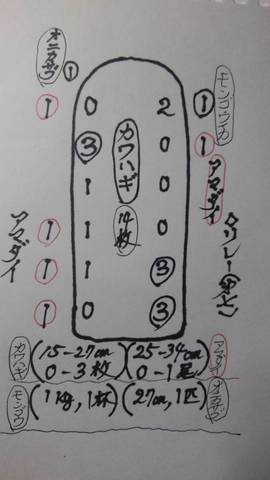 オニカサゴ ①
モンゴウイカ
1 0 2 ①
③ 0 1
1 0
1 1 0
1 1 ③
1 0 ③
カワハギ
14枚
アマダイ
アマダイ
カワハギ (15-27cm 0-3枚) (25-34cm 0-1尾) アマダイ
モンゴウ (1kg, 1杯) (27cm, 1匹) オニカサゴ